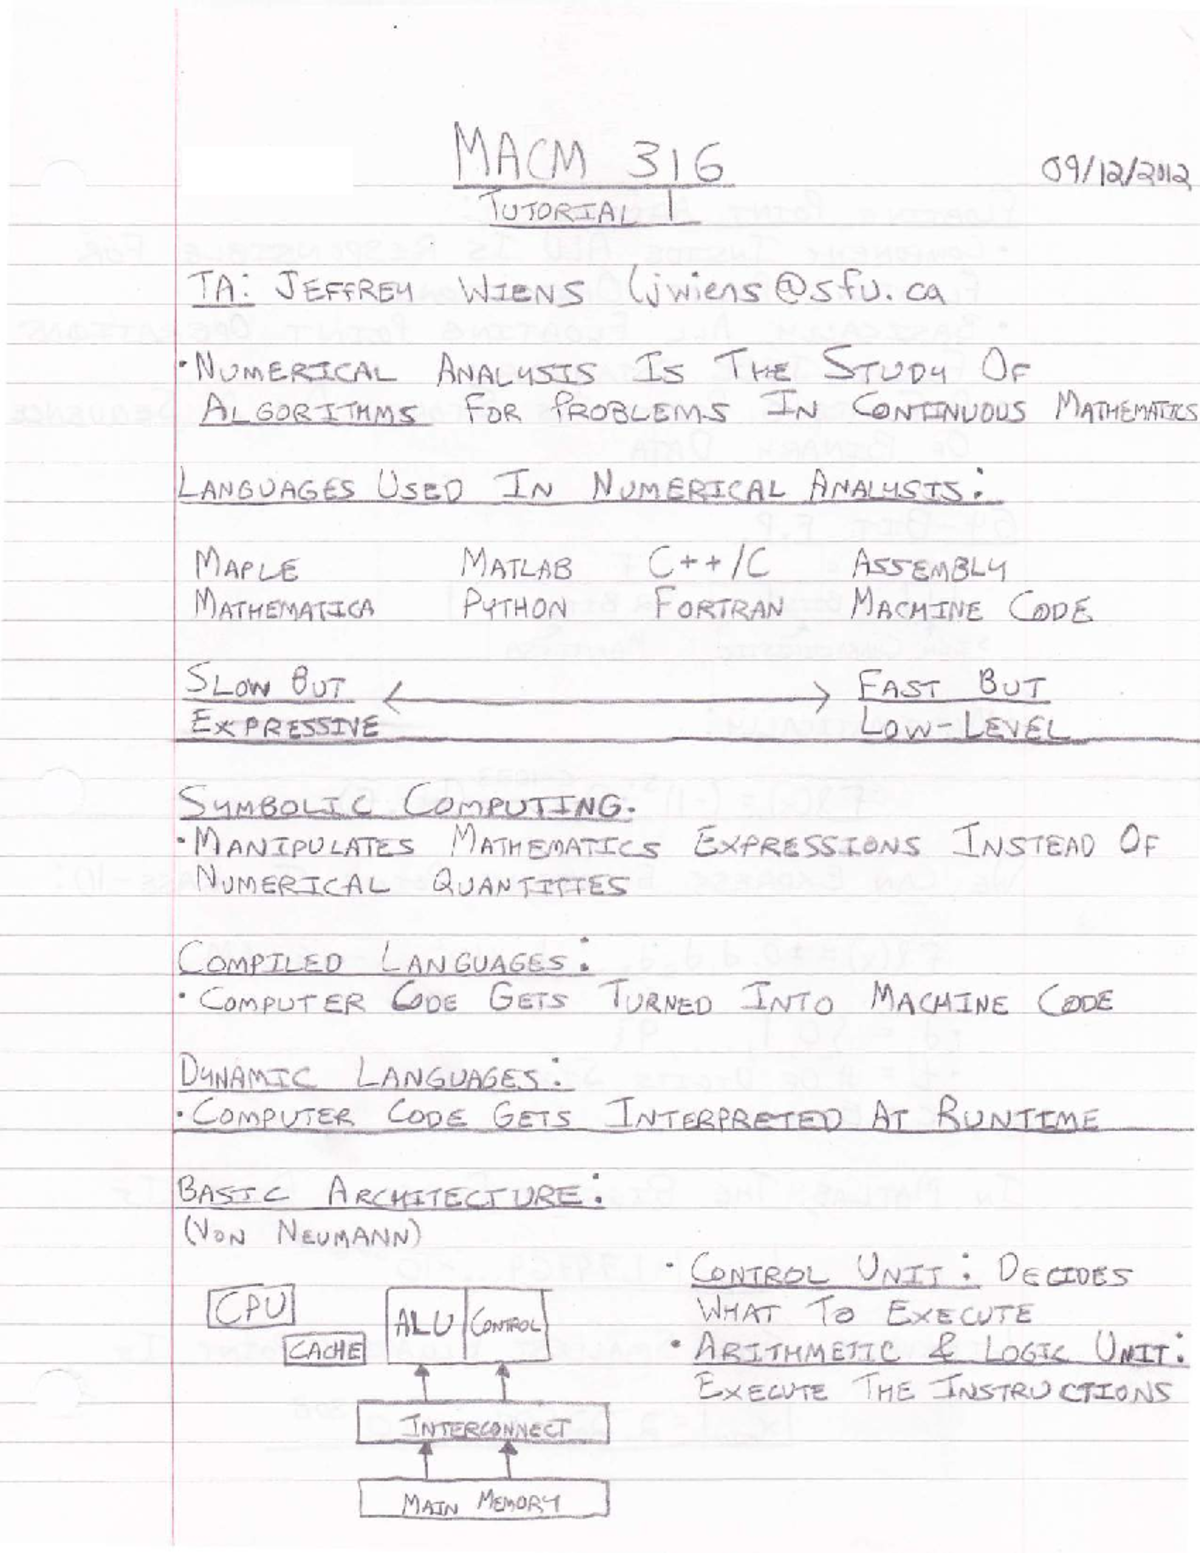 MACM 316
09/12/2012
TUTORIAL 1
TA: JEFFREY WIENS (jwiens@sfu.ca
• NUMERICAL ANALYSIS IS THE STUDY OF
ALGORITHMS FOR PROBLEMS IN CONTINUOUS MATHEMATICS
LANGUAGES USED IN NUMERICAL ANALYSIS:
MAPLE MATLAB C++/C ASSEMBLY
MATHEMATICA PYTHON FORTRAN MACHINE CODE
SLOW BUT FAST BUT
EXPRESSIVE LOW-LEVEL
SYMBOLIC COMPUTING:
• MANIPULATES MATHEMATICS EXPRESSIONS INSTEAD OF
NUMERICAL QUANTITIES
COMPILED LANGUAGES:
• COMPUTER CODE GETS TURNED INTO MACHINE CODE
DYNAMIC LANGUAGES:
• COMPUTER CODE GETS INTERPRETED AT RUNTIME
BASIC ARCHITECTURE:
(VON NEUMANN)
CPU
CACHE
ALU CONTROL
INTERCONNECT
MAIN MEMORY
• CONTROL UNIT: DECIDES
WHAT TO EXECUTE
• ARITHMETIC & LOGIC UNIT:
EXECUTE THE INSTRUCTIONS